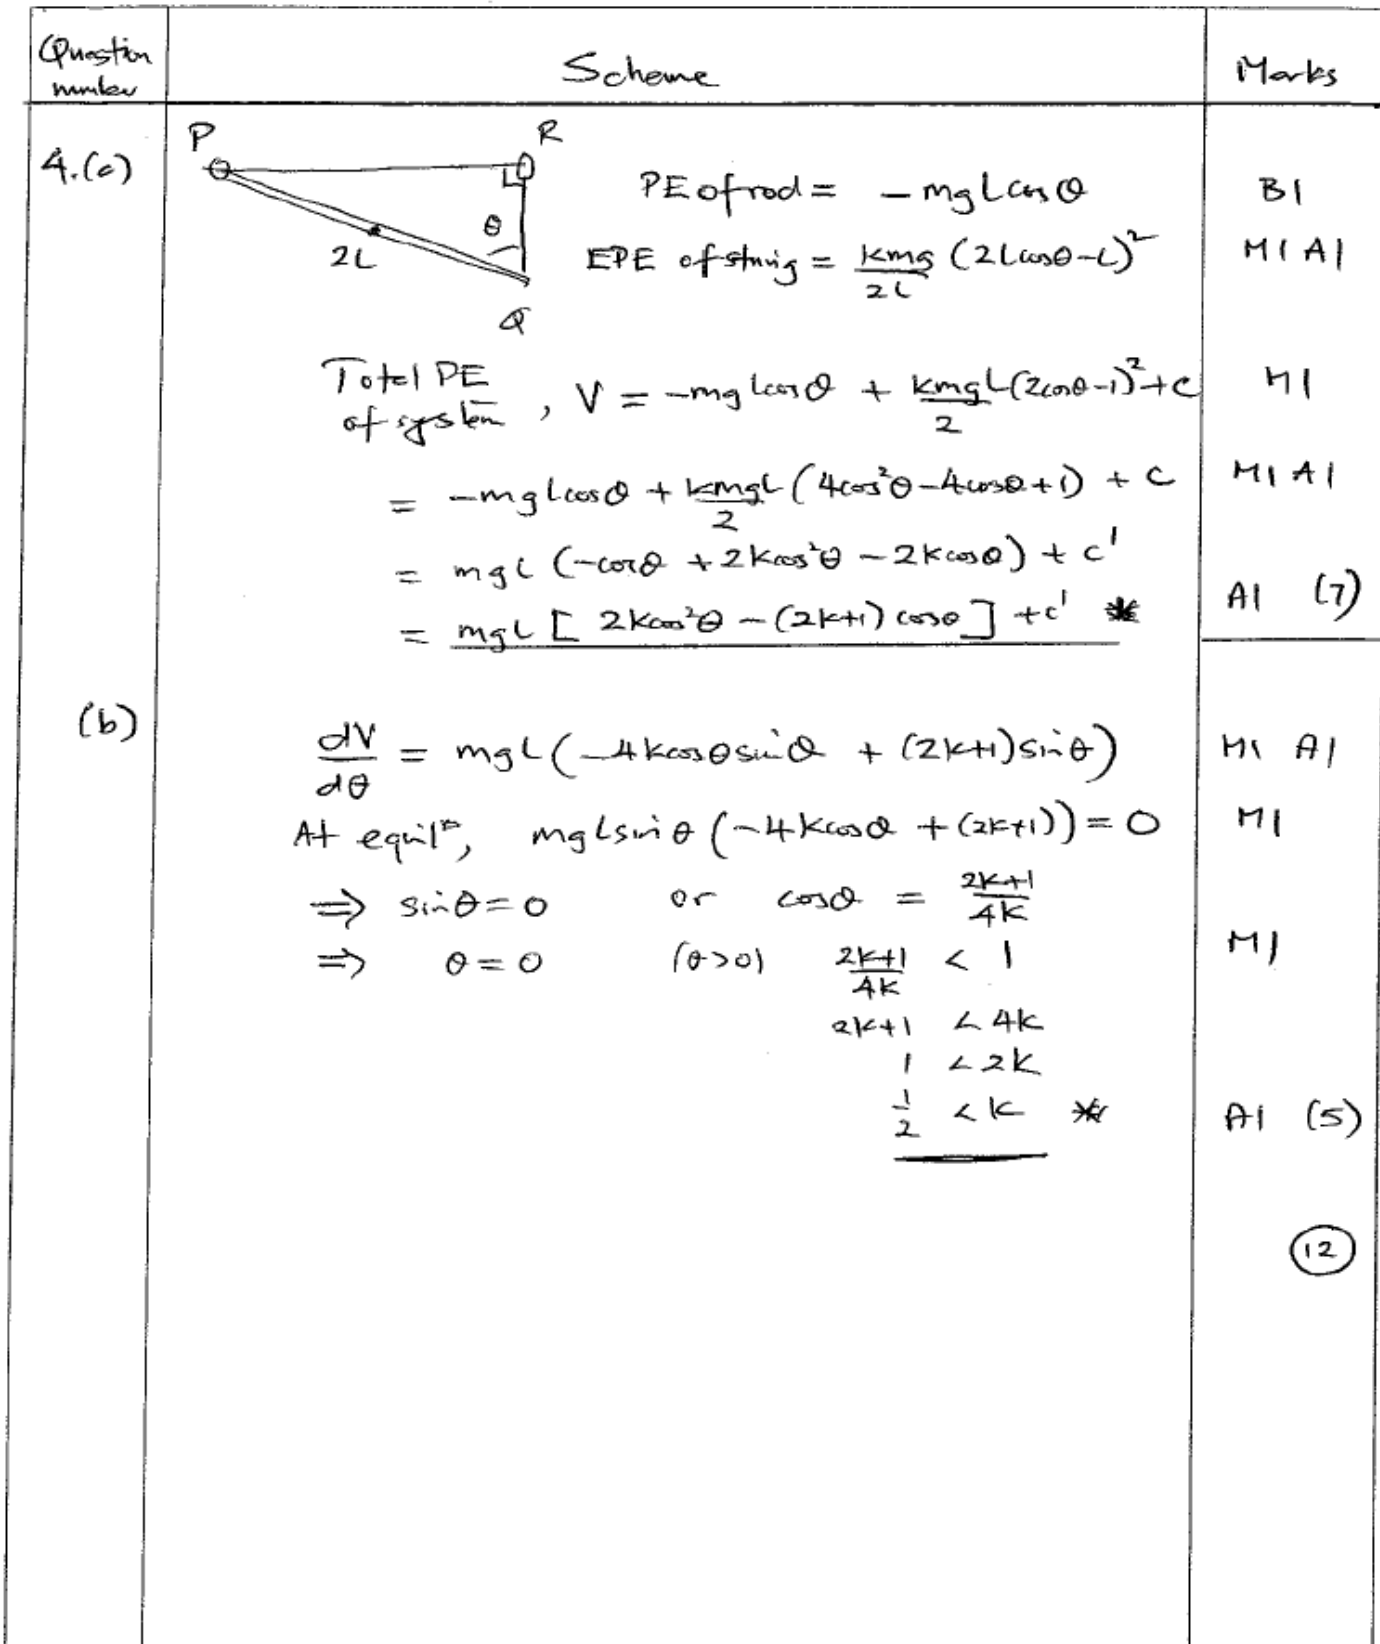 Question number Scheme Marks
4.(a) P R
PE of rod = - mgL cos θ B1
θ
2L EPE of string = kmg/2L (2L cosθ - L)² M1 A1
Q
Total PE of system, V = -mgL cosθ + kmgL/2 (2cosθ-1)² + c M1
= -mgL cosθ + kmgL/2 (4cos²θ - 4cosθ + 1) + c M1 A1
= mgL (-cosθ + 2kcos²θ - 2kcosθ) + c'
= mgL [ 2kcos²θ - (2k+1) cosθ ] + c' * A1 (7)
(b) dV/dθ = mgL (-4kcosθ sinθ + (2k+1) sinθ) M1 A1
At equilm, mgL sinθ (-4kcosθ + (2k+1)) = 0 M1
⇒ sinθ = 0 or cosθ = 2k+1/4k
⇒ θ = 0 (θ>0) 2k+1/4k < 1 M1
2k+1 < 4k
1 < 2k
1/2 < k * A1 (5)
12